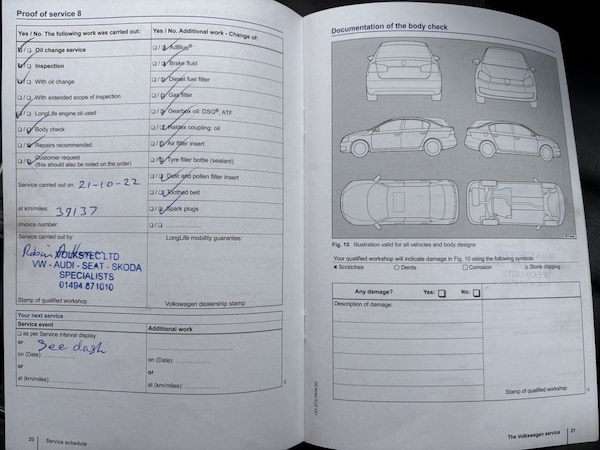 Proof of service 8
Yes / No. The following work was carried out:
☐/☐ Oil change service
☐/☐ Inspection
☐/☐ With oil change
☐/☐ With extended scope of inspection
☐/☐ LongLife engine oil used
☐/☐ Body check
☐/☐ Repairs recommended
☐/☐ Customer request
(this should also be noted on the order)
Service carried out on: 21-10-22
at km/miles: 37137
Invoice number:
Service carried out by:
Robin
VOLKSTEC LTD
VW - AUDI - SEAT - SKODA
SPECIALISTS
01494 871010
Stamp of qualified workshop
Yes / No. Additional work - Change of:
☐/☐ AdBlue®
☐/☐ Brake fluid
☐/☐ Diesel fuel filter
☐/☐ Gas filter
☐/☐ Gearbox oil: DSG®, ATF
☐/☐ Haldex coupling: oil
☐/☐ Air filter insert
☐/☐ Tyre filler bottle (sealant)
☐/☐ Dust and pollen filter insert
☐/☐ Toothed belt
☐/☐ Spark plugs
☐/☐
LongLife mobility guarantee
Volkswagen dealership stamp
Your next service
Service event
☐ as per Service interval display
or See dash
on (Date):
or
at (km/miles):
Additional work
on (Date):
or
at (km/miles):
20 | Service schedule
Documentation of the body check
Fig. 10 Illustration valid for all vehicles and body designs
Your qualified workshop will indicate damage in Fig. 10 using the following symbols:
× Scratches ○ Dents □ Corrosion △ Stone chipping
Any damage? Yes: ☐ No: ☐
Description of damage:
Stamp of qualified workshop
The Volkswagen service | 21